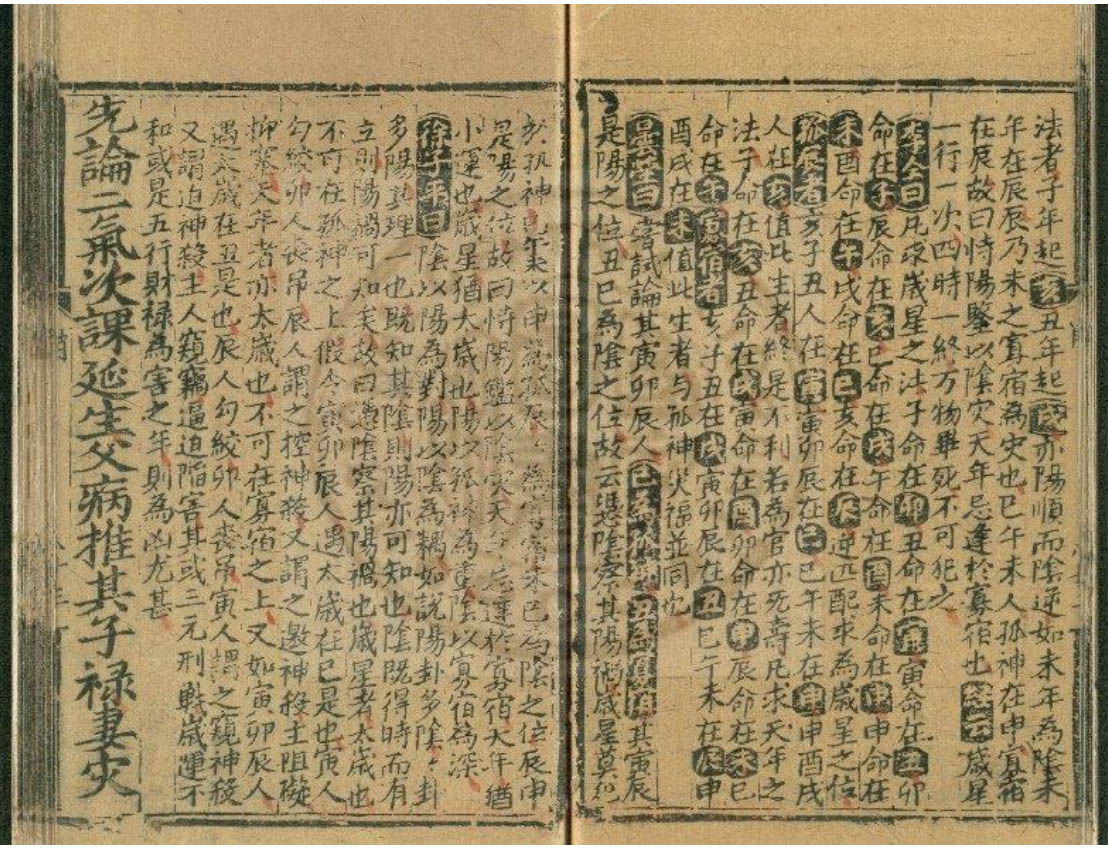 法者子年起亥丑年起戌亦陽順而陰逆如未年為陰未
年在辰辰乃未之寡宿為灾也巳午未人孤神在申寡宿
在辰故曰恃陽鑒以陰灾天年忌逢於寡宿也 歲星
一行一次四時一終万物畢死不可犯之
李仝曰凡求歲星之法子命在卯丑命在 寅命在丑卯
命在子辰命在亥巳命在戌午命在酉未命在 申命在
未酉命在午戌命在巳亥命在辰逆匹配求為歲星之位
孤辰者亥子丑人在寅寅卯辰在巳巳午未在申申酉戌
人在亥值此生者終是不利若為官亦死壽凡求天年之
法子命在亥丑命在戌寅命在酉卯命在申辰命在未巳
命在午寡宿者亥子丑在戌寅卯辰在丑巳午未在辰申
酉戌在未值此生者与孤神灾福並同忧
曇瑩曰嘗試論其寅卯辰人巳為孤 丑為寡宿其寅辰
是陽之位丑巳為陰之位故云憑陰察其陽禍歲星莫犯
於孤神巳午未以申為孤辰 寡宿未巳為陰之位辰申
是陽之位故曰恃陽鑑以陰灾天年忌逢於寡宿天年猶
小運也歲星猶大歲也陽以孤神為 陰以寡宿為深
徐子平曰陰以陽為對陽以陰為耦如說陽卦多陰陰卦
多陽其理一也既知其陰則陽亦可知也陰既得時而有
立則陽禍可知矣故曰憑陰察其陽禍也歲星者太歲也
不可在孤神之上假令寅卯辰人遇太歲在巳是也寅人
勾絞卯人喪吊辰人謂之控神殺又謂之邀神殺主阻礙
抑塞天年者亦太歲也不可在寡宿之上又如寅卯辰人
遇太歲在丑是也辰人勾絞卯人喪吊寅人謂之窺神殺
又謂迫神殺主人窺竊逼迫陷害其或三元刑戰歲運不
和或是五行財祿為害之年則為凶尤甚
先論二氣次課延生父病推其子祿妻灾